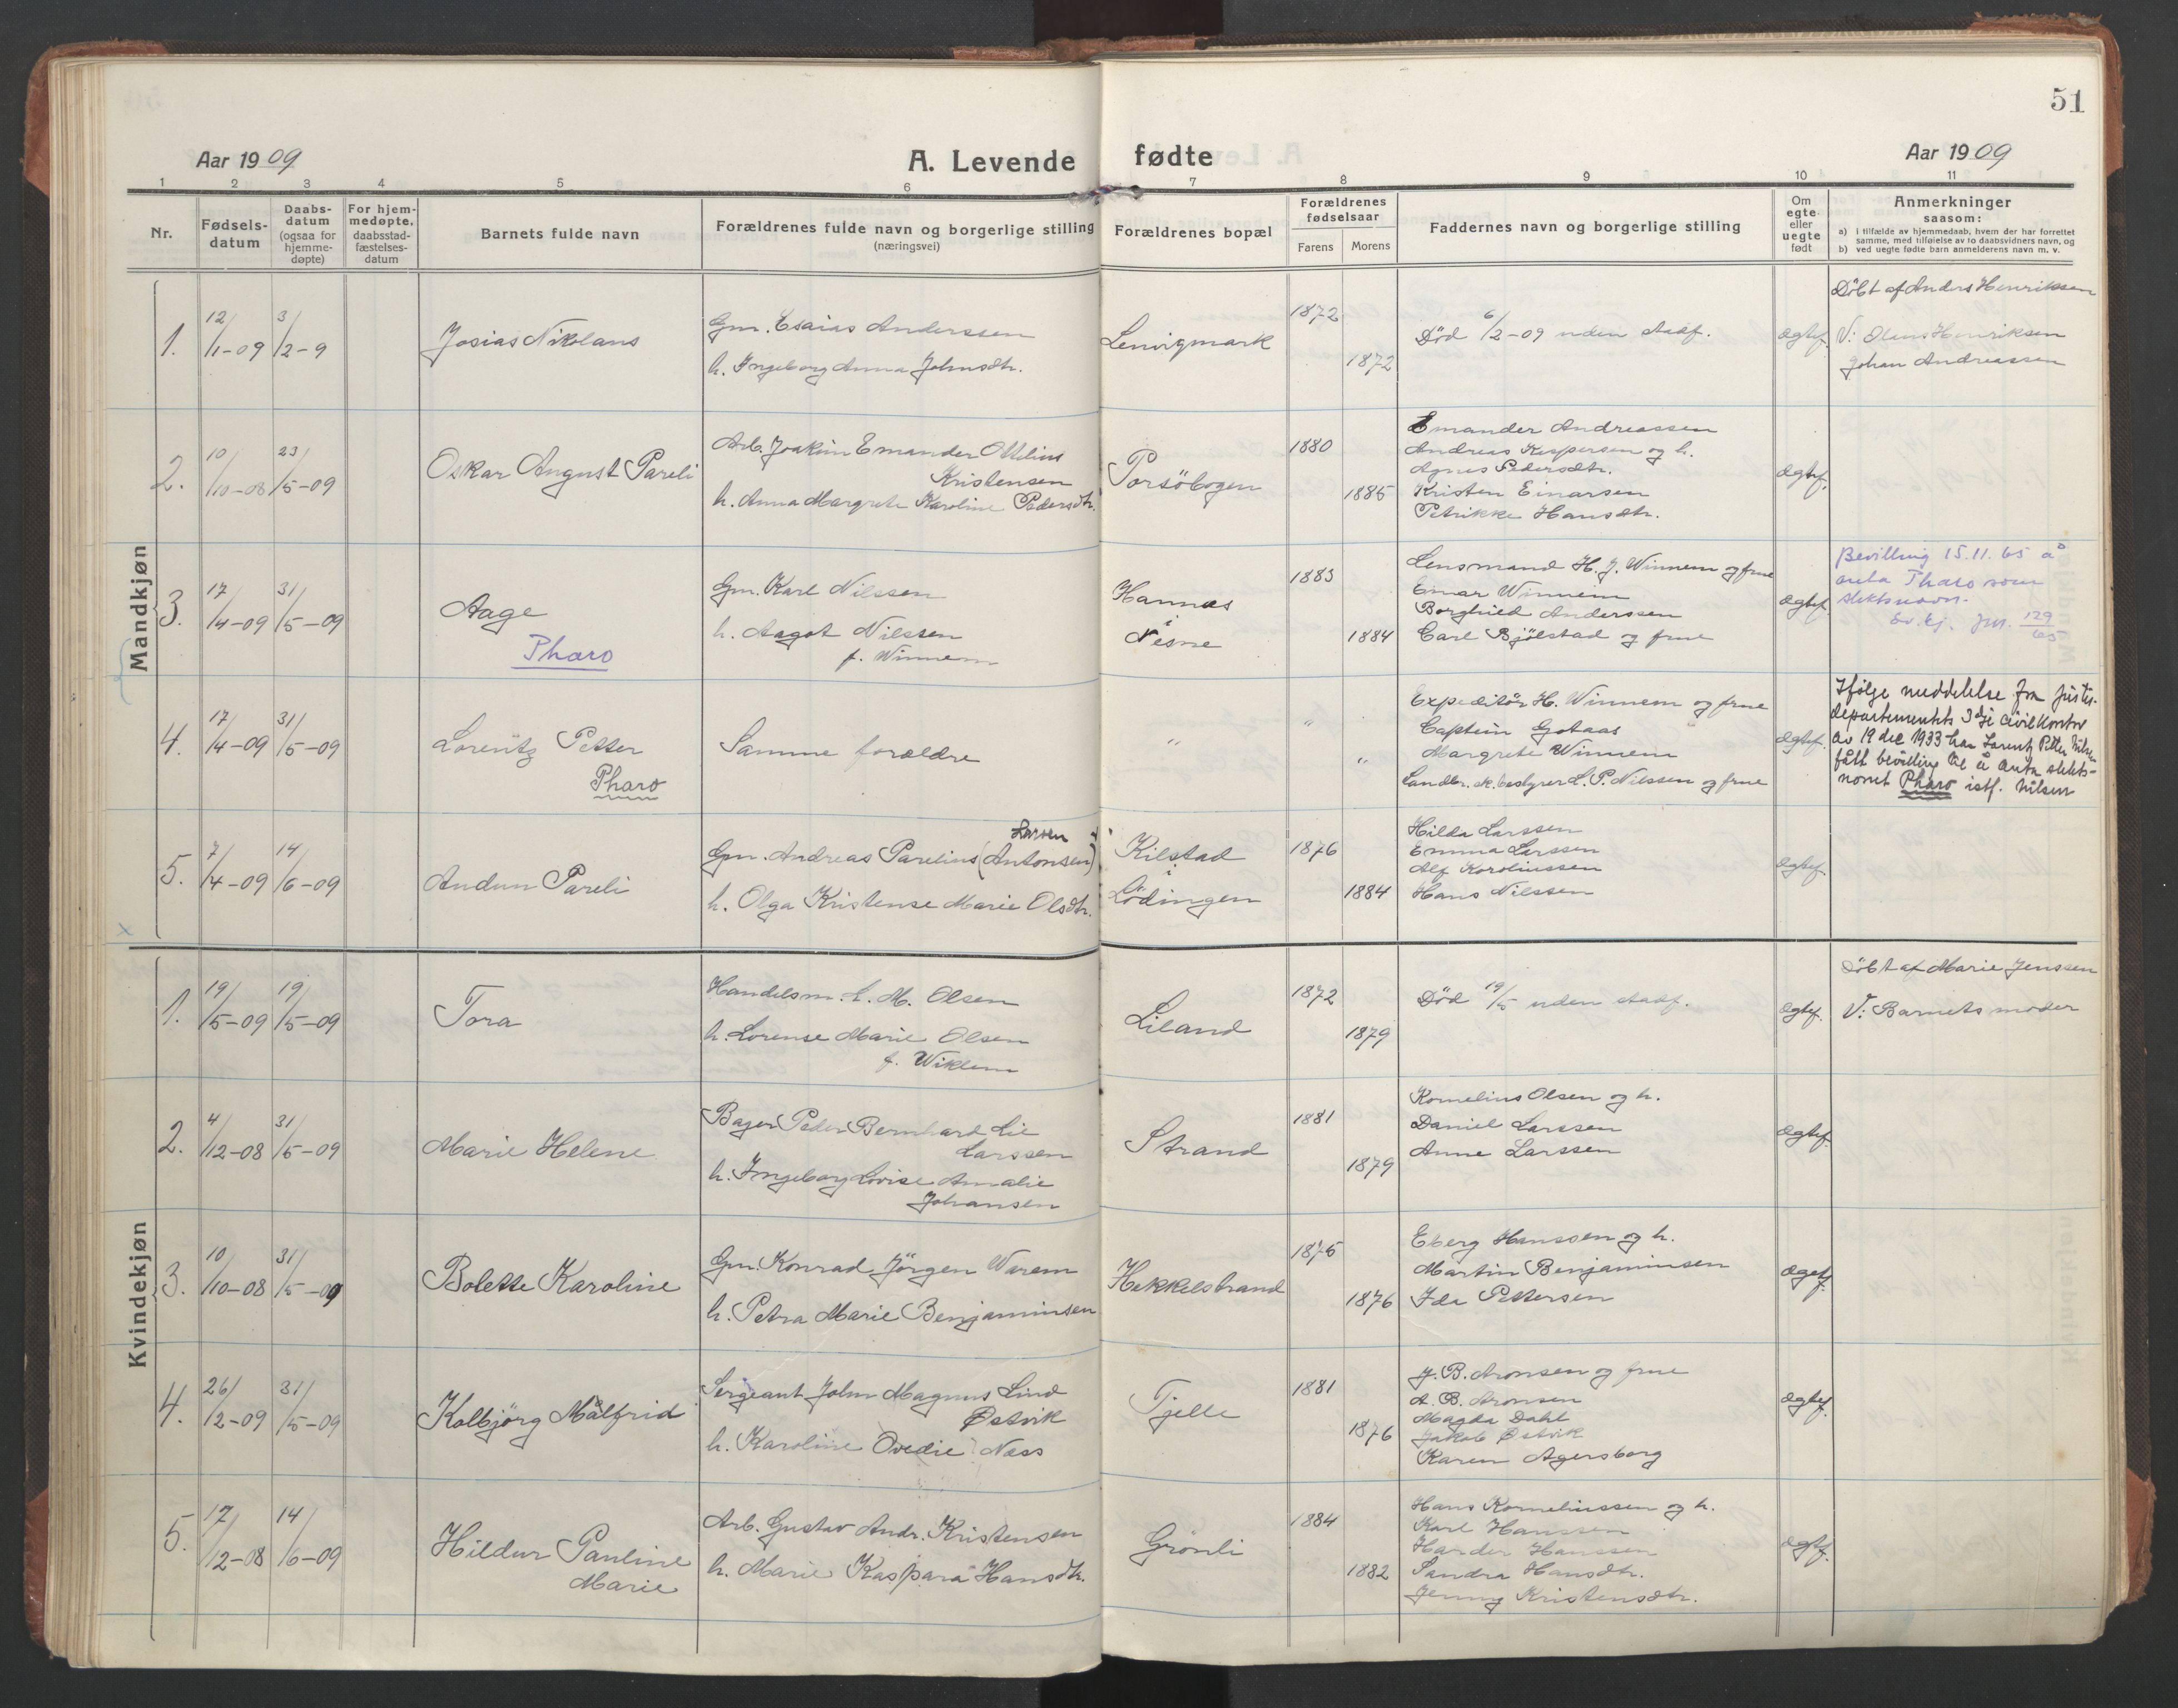 51
Aar 1909
A. Levende fødte
Aar 1909
1 2 3 4 5 6 7 8 9 10 11
Nr.
Fødsels-
datum
Daabs-
datum
(ogsaa for
hjemme-
døpte)
For hjem-
medøpte,
daabsstad-
fæstelses-
datum
Barnets fulde navn
Forældrenes fulde navn og borgerlige stilling
(næringsvei)
Forældrenes bopæl
Forældrenes
fødselsaar
Farens
Morens
Faddernes navn og borgerlige stilling
Om
egte
eller
uegte
født
Anmerkninger
saasom:
a) i tilfælde av hjemmedaab, hvem der har forrettet
samme, med tilføielse av to daabsvidners navn, og
b) ved uegte fødte barn anmelderens navn m. v.
Mandkjøn
1.
12/1-09
3/2-9
Josias Nikolaus
Gm. Esaias Anderssen
h. Ingeborg Anna Johnsdtr.
Lenvigmark
1872
1872
Død 6/2-09 uden stadf.
ægtef.
Döbt af Anders Henriksen
V: Olaus Henriksen
Johan Andreassen
2.
10/10-08
23/5-09
Oskar August Pareli
Arb. Joakim Emander Ottelius
Kristensen
h. Anna Margrete Karoline Pedersdtr.
Porsöbogen
1880
1885
Emander Andreassen
Andreas Kaspersen og h.
Agnes Pedersdtr.
Kristen Einarsen
Petrikke Hansdtr.
ægtef.
3.
17/4-09
31/5-09
Aage
Pharo
Gm. Karl Nilssen
h. Aagot Nilssen
f. Winnem
Hannæs
i
Nesne
1883
1884
Lensmand H. J. Winnem og frue
Einar Winnem
Borghild Anderssen
Carl Bjölstad og frue
ægtef.
Bevilling 15.11.65 å
anta Pharo som
slektsnavn.
jnr. 129/65
4.
17/4-09
31/5-09
Lorentz Petter
Pharo
Samme forældre
"
"
"
Expeditör H. Winnem og frue
Captein Gotaas
Margrete Winnem
Landbr.sk.bestyrer L. P. Nilssen og frue
ægtef.
Ifølge meddelelse fra justis-
departementets 3dje civilkontor
av 19 dec 1933 har Lorentz Petter Nilsen
fått bevilling til å anta slekts-
navnet Pharo istf. Nilsen
5.
7/4-09
14/6-09
Audun Pareli
Larsen
Gm. Andreas Parelius (Antonsen)
h. Olga Kristense Marie Olsdtr.
Kilstad
i
Lödingen
1876
1884
Hilda Larssen
Emma Larssen
Alf Karoliussen
Hans Nilssen
ægtef.
x
Kvindekjøn
1.
19/5-09
19/5-09
Tora
Handelsm. L. M. Olsen
h. Lorense Marie Olsen
f. Wiklem
Liland
1872
1879
Död 19/5 uden stadf.
ægtef.
Döbt af Marie Jenssen
V: Barnets moder
2.
4/12-08
31/5-09
Marie Helene
Bager Peder Bernhard Lie
Larssen
h. Ingeborg Lovise Amalie
Johansen
Strand
1881
1879
Kornelius Olsen og h.
Daniel Larssen
Anne Larssen
ægtef.
3.
10/10-08
31/5-09
Bolette Karoline
Gm. Konrad Jörgen Warem
h. Petra Marie Benjaminsen
Hekkelstrand
1875
1876
Eberg Hanssen og h.
Martin Benjaminsen
Ida Pettersen
ægtef.
4.
26/2-09
31/5-09
Kolbjörg Målfrid
Sergeant John Magnus Lind
Østvik
h. Karoline Ovedie Næss
Tjelle
1881
1876
J. B. Aronsen og frue
A. B. Aronsen
Magda Dahl
Jakob Østvik
Karen Agersborg
ægtef.
5.
17/12-08
14/6-09
Hildur Pauline
Marie
Arb. Gustav Andr. Kristensen
h. Marie Kaspara Hansdtr.
Grönli
1884
1882
Hans Korneliussen og h.
Karl Hanssen
Harder Hanssen
Sandra Hansdtr.
Jenny Kristensdtr.
ægtef.